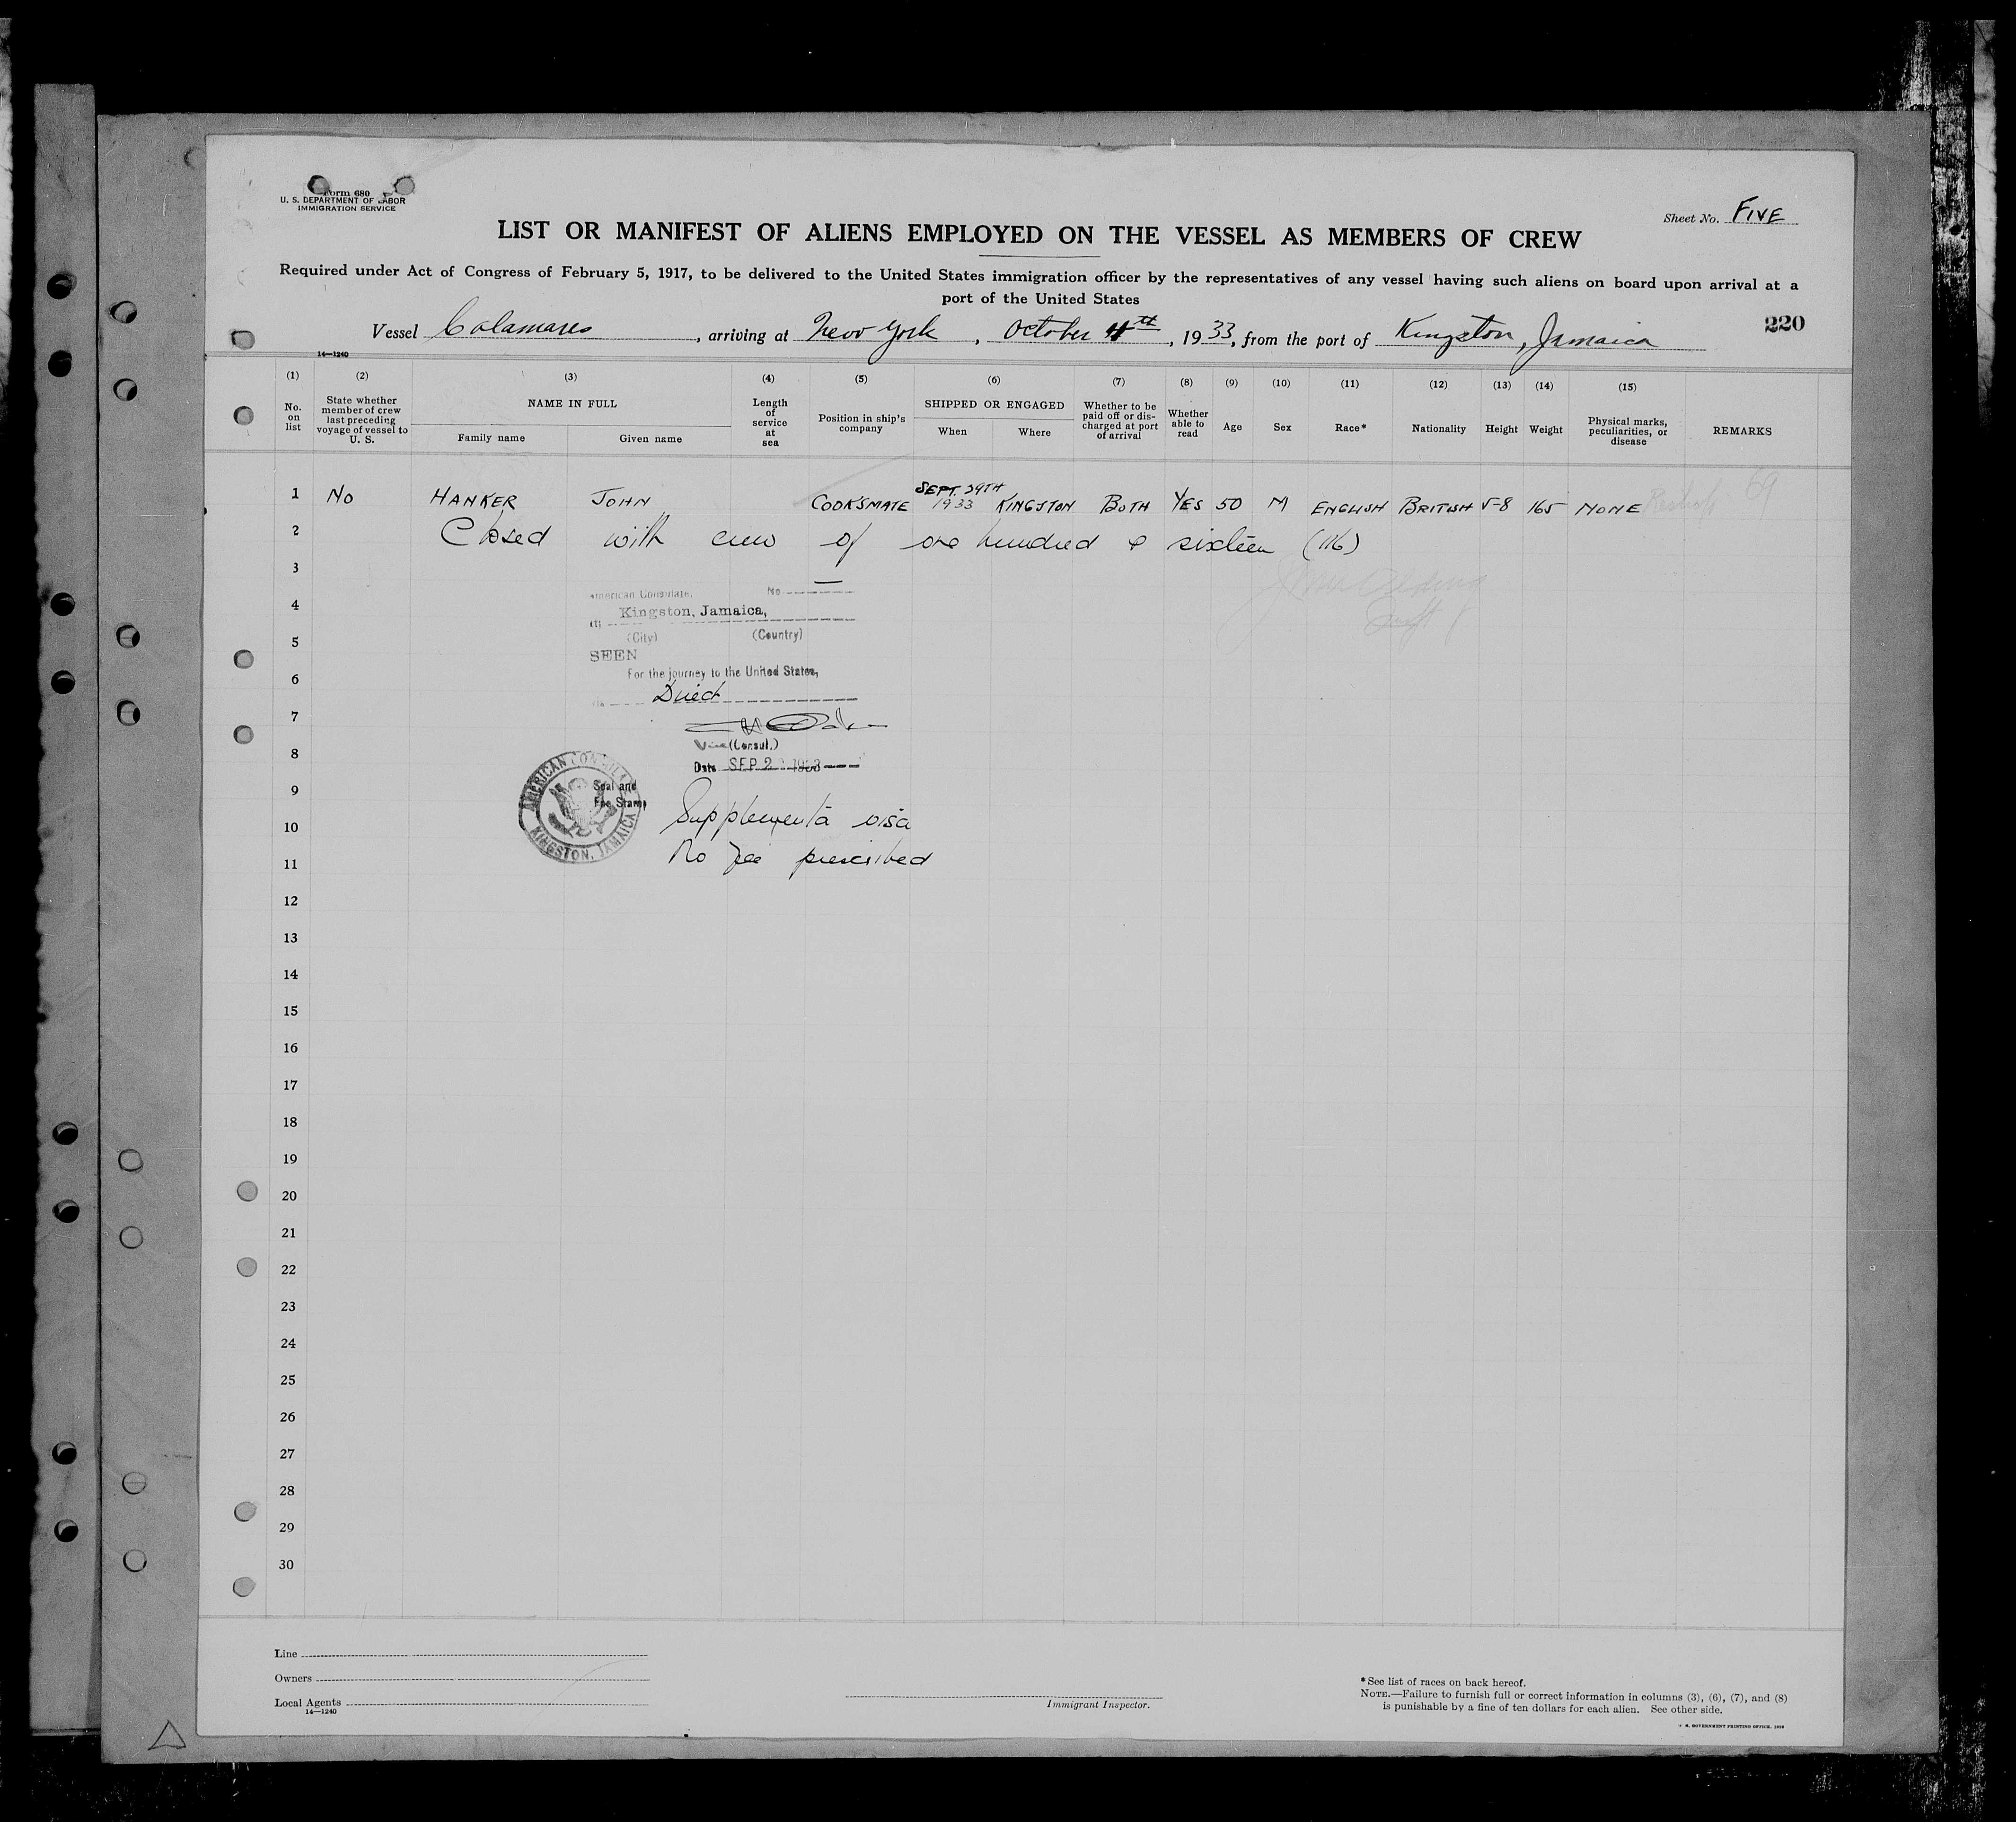 Form 680
U. S. DEPARTMENT OF LABOR
IMMIGRATION SERVICE
Sheet No. FIVE
LIST OR MANIFEST OF ALIENS EMPLOYED ON THE VESSEL AS MEMBERS OF CREW
Required under Act of Congress of February 5, 1917, to be delivered to the United States immigration officer by the representatives of any vessel having such aliens on board upon arrival at a
port of the United States
220
Vessel Calamares, arriving at New York, October 4th, 1933, from the port of Kingston, Jamaica
14—1240
(1) (2) (3) (4) (5) (6) (7) (8) (9) (10) (11) (12) (13) (14) (15)
No. on list
State whether member of crew last preceding voyage of vessel to U. S.
NAME IN FULL
Family name
Given name
Length of service at sea
Position in ship's company
SHIPPED OR ENGAGED
When
Where
Whether to be paid off or discharged at port of arrival
Whether able to read
Age
Sex
Race*
Nationality
Height
Weight
Physical marks, peculiarities, or disease
REMARKS
1 No HANKER JOHN COOKSMATE SEPT. 29TH 1933 KINGSTON BOTH YES 50 M ENGLISH BRITISH 5-8 165 NONE 69
2 Closed with crew of one hundred & sixteen (116)
3
American Consulate, No.
4 Kingston, Jamaica,
5 (City) (Country)
SEEN
6 For the journey to the United States,
Direct
7
Vice (Consul.)
8 Date SEP 2 1933
AMERICAN CONSULATE
KINGSTON, JAMAICA
9 Seal and
Fee Stamp
10 Supplemental visa
11 No fee prescribed
12
13
14
15
16
17
18
19
20
21
22
23
24
25
26
27
28
29
30
Line
Owners
Local Agents
14—1240
Immigrant Inspector.
*See list of races on back hereof.
NOTE.—Failure to furnish full or correct information in columns (3), (6), (7), and (8)
is punishable by a fine of ten dollars for each alien. See other side.
U. S. GOVERNMENT PRINTING OFFICE.